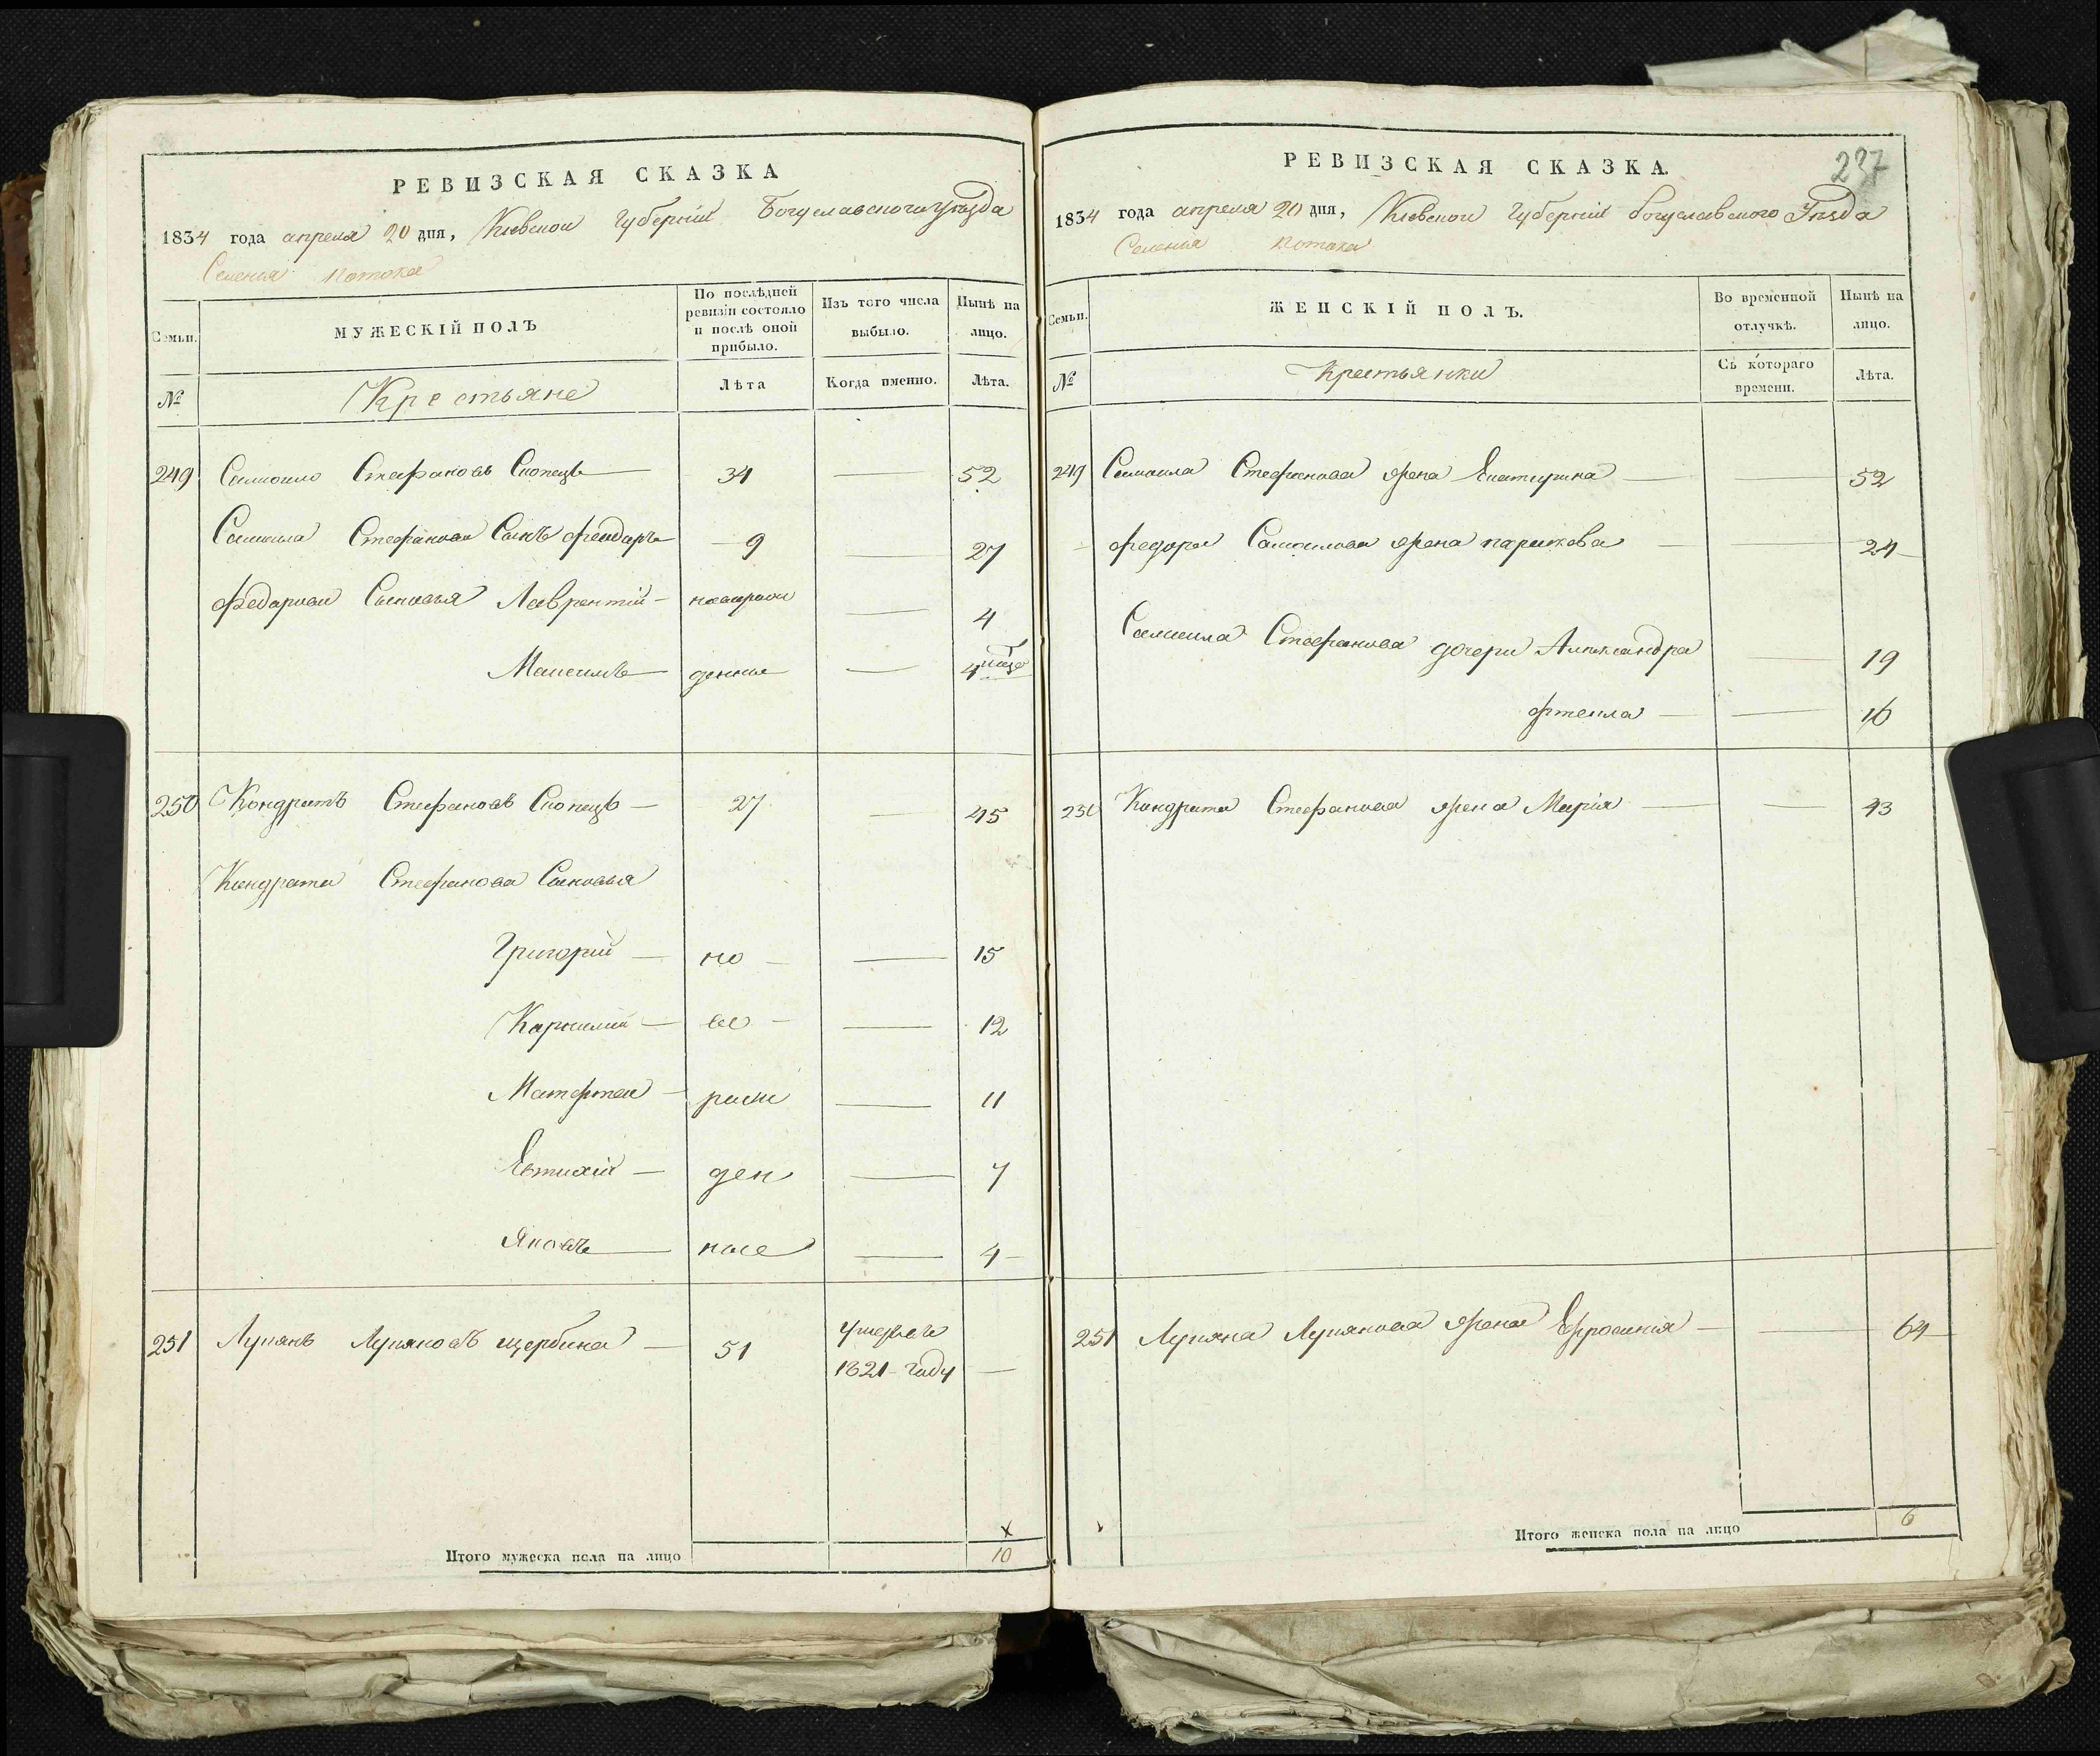 РЕВИЗСКАЯ СКАЗКА
1834 года апреля 20 дня, Киевской Губерніи Богуславского Уезда
Селенія Потока
Семьи.
МУЖЕСКІЙ ПОЛЪ
По послѣдней ревизіи состояло и послѣ оной прибыло.
Изъ того числа выбыло.
Нынѣ на лицо.
№
Крестьяне
Лѣта
Когда именно.
Лѣта.
249 Самоило Стефановъ Скопецъ 34 52
Самоила Стефанова Сынъ Феодоръ 9 27
Федорови Сыновья Лаврентій новорож 4
Максимъ денные 4 меся
250 Кондратъ Стефановъ Скопецъ 27 45
Кондрата Стефанова Сыновья
Григорій но 15
Корнилій во 12
Матфтей рож 11
Евтихій ден 7
Яковъ ные 4
251 Лукянъ Лукяновъ щербина 51 умерълъ
1821 году
Итого мужеска пола на лицо 10
РЕВИЗСКАЯ СКАЗКА.
237
1834 года апреля 20 дня, Киевской Губерніи Богуславского Уезда
Селенія Потока
Семьи.
ЖЕНСКІЙ ПОЛЪ.
Во временной отлучкѣ.
Нынѣ на лицо.
№
Крестьянки
Съ котораго времени.
Лѣта.
249 Самоила Стефанова жена Екатерина 52
Федора Самоилова жена 24
Самоила Стефанова дочери Александра 19
Фтекла 16
250 Кондрата Стефанова жена Марія 43
251 Лукяна Лукянова жена Ефросинія 64
Итого женска пола на лицо 6